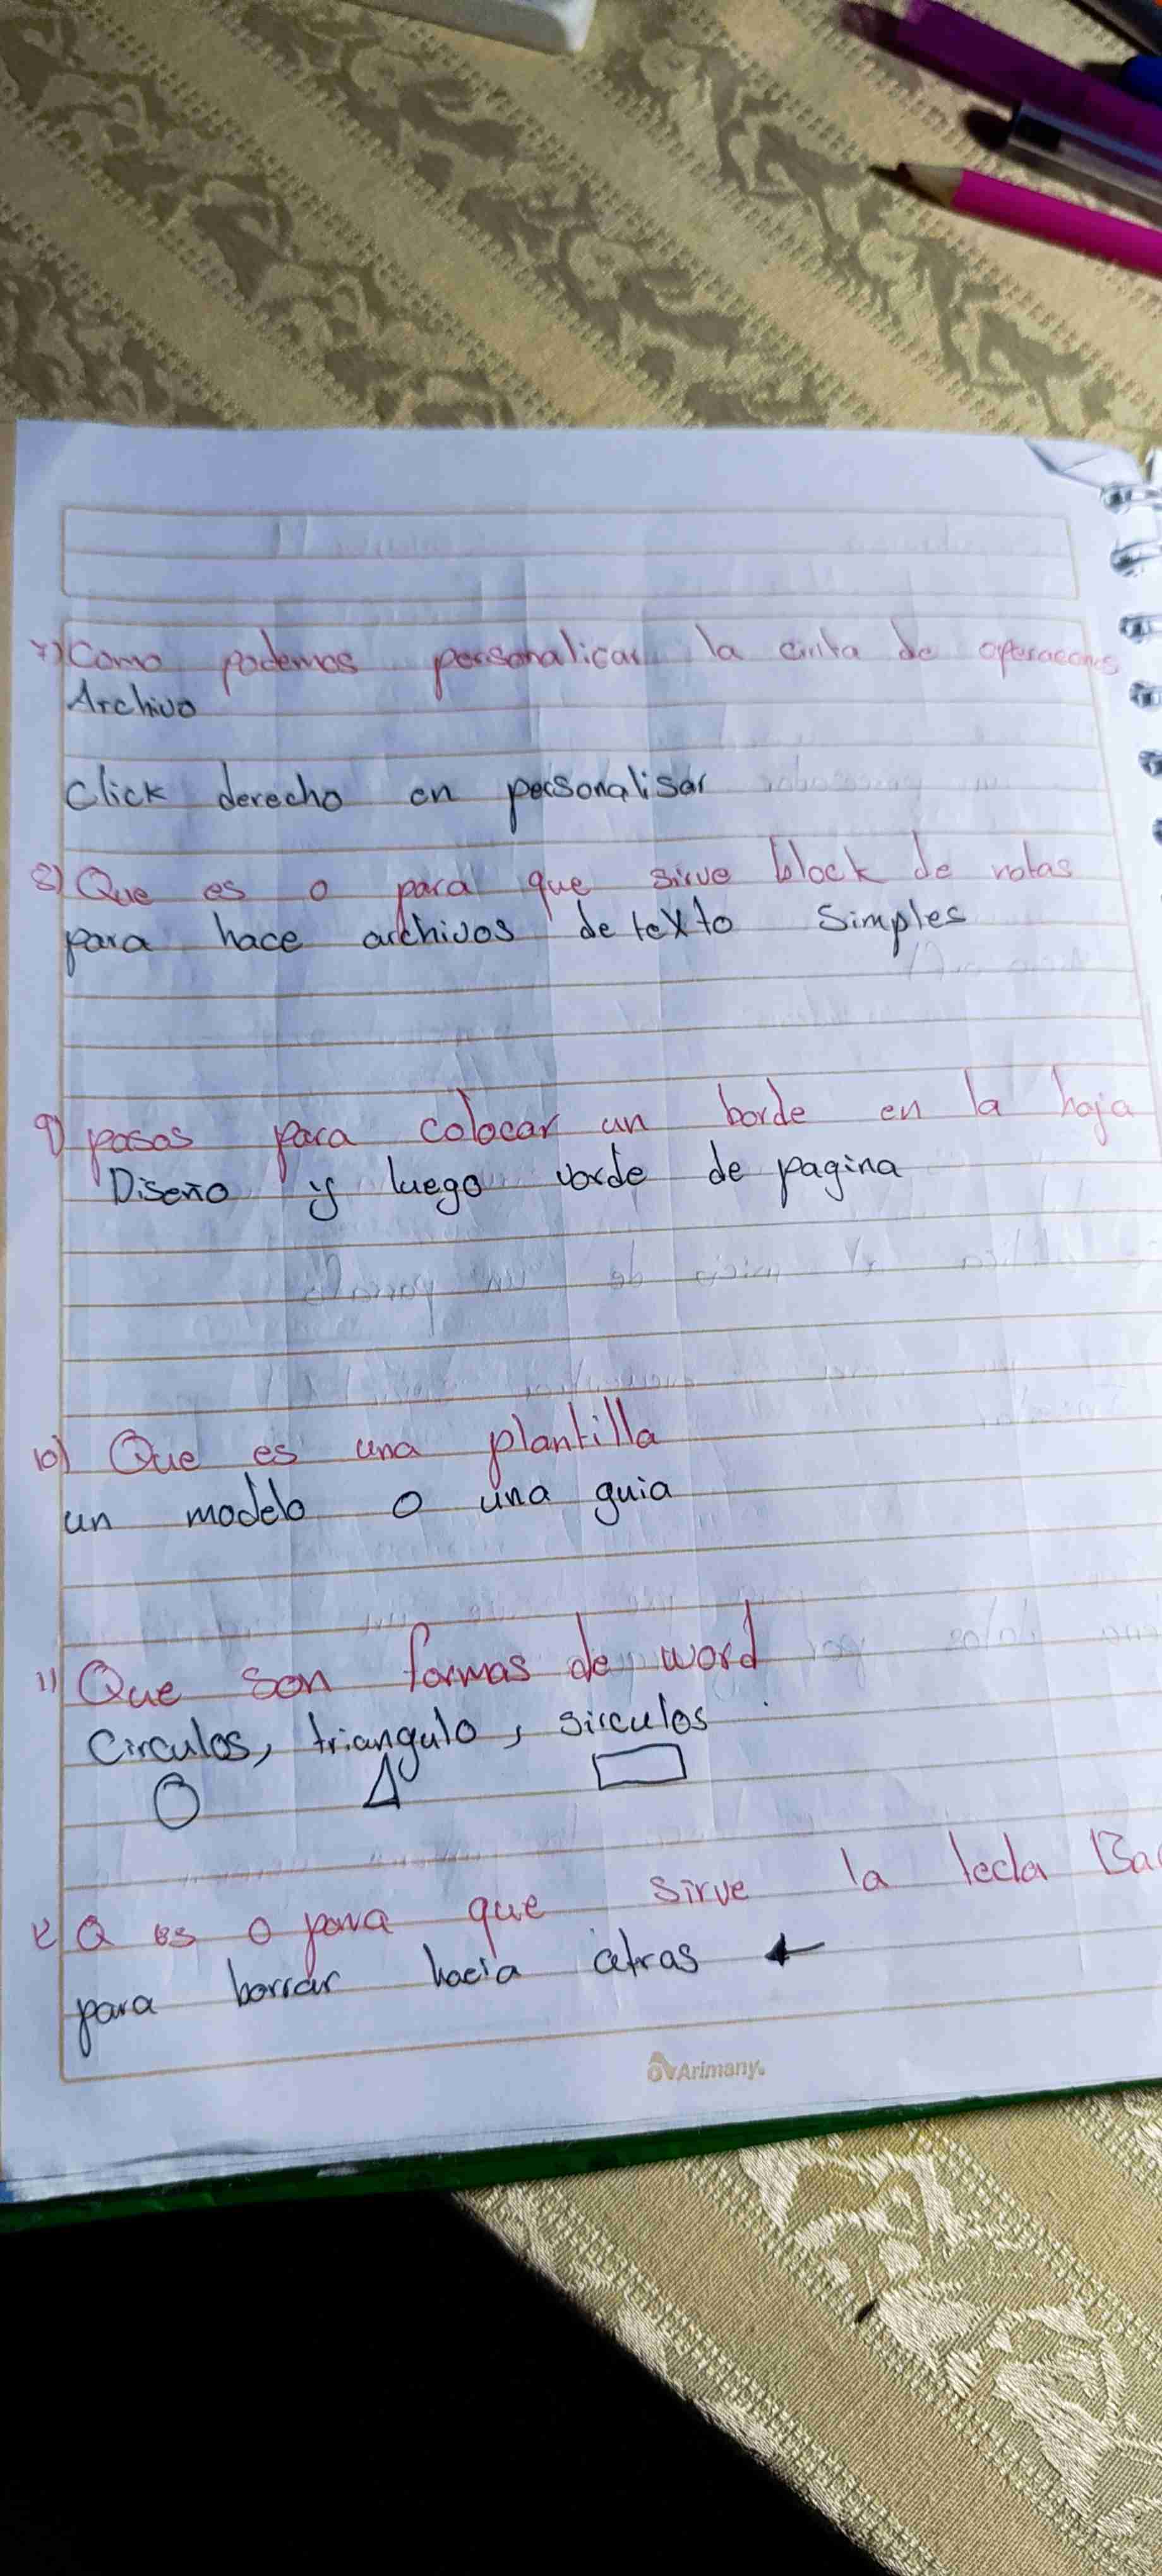 7) Como podemos personalicar la cinta de operacions
Archivo
Click derecho en personalisar
8) Que es o para que sirve block de notas
para hace archivos de texto simples
9) pasos para colocar un borde en la hoja
Diseño y luego vorde de pagina
10) Que es una plantilla
un modelo o una guia
11) Que son formas de word
Circulos, triangulo, sirculos
Q es o para que sirve la tecla Bac
para borrar hacia atras ←
Arimany